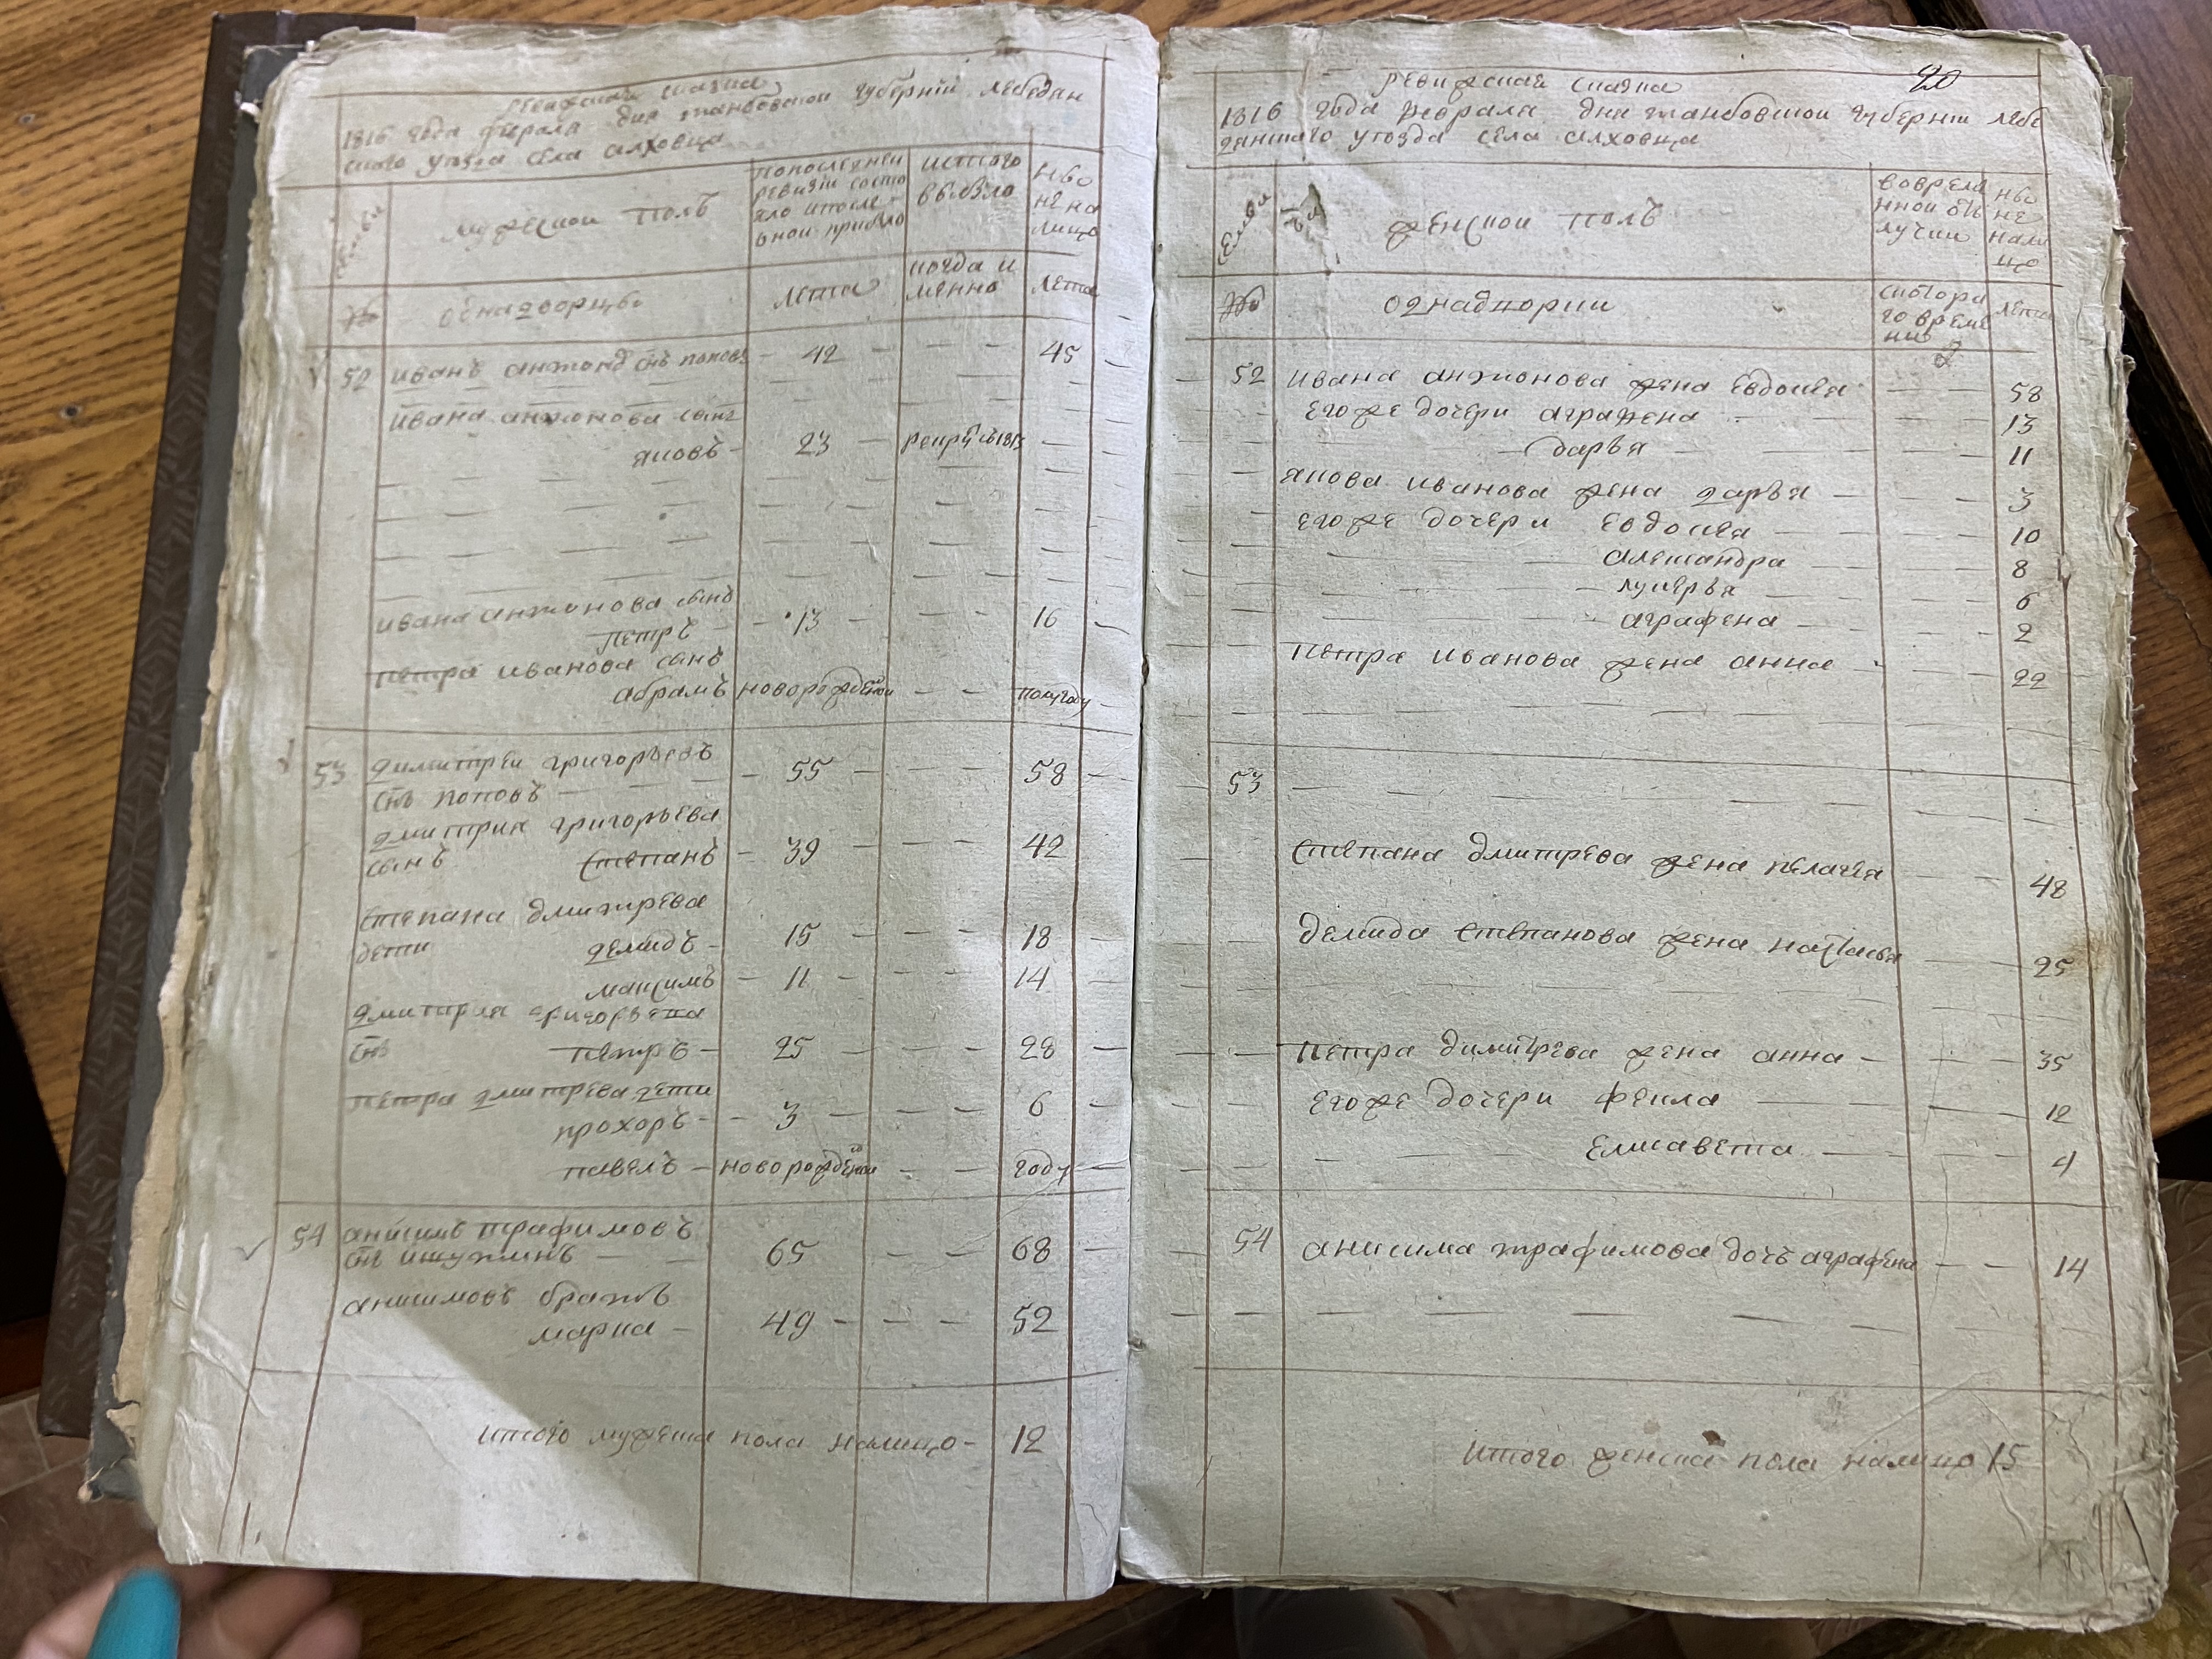 ревижская сказка
1816 года февраля дня танбовской губернии лебедян
ского уезда села алховца
мужеской полъ
попоследней
ревизии состо
яло ипосле
оной прибыло
исього
выбыло
ныо
не на
лицо
№
однадворцы
лета
когда и
менно
лета
52 иванъ антонов снъ поповъ 42 45
ивана антонова сынъ
яковъ 23
ивана антонова сынъ
петръ 13 16
петра иванова сынъ
абрамъ новорожденой полугоду
53 димитреи григорьевъ 55 58
снъ поповъ
дмитрия григорьева
сынъ степанъ 39 42
степана дмитрева
дети демидъ 15 18
максимъ 11 14
дмитрия григорьева
снъ петръ 25 28
петра дмитрева дети
прохоръ 3 6
павелъ новорожденои году
54 анисимъ трафимовъ
снъ ишутинъ 65 68
анисимовъ братъ
марка 49 52
итого мужеска пола налицо 12
20
ревижская сказка
1816 года февраля дня танбовской губернии лебе
дянского уезда села алховца
женской полъ
вовреме
нной отъ
лучки
ныо
не
нали
цо
№
однадворки
скотора
го време
ни
лета
2
52 ивана антонова жена евдокея 58
егоже дочери аграфена 13
дарья 11
якова иванова жена дарья 3
егоже дочери евдокея 10
александра 8
лукерья 6
аграфена 2
петра иванова жена анна 22
53
степана дмитрева жена пелагея 48
демида степанова жена настасья 25
петра димитрева жена анна 35
егоже дочери фекла 12
елисавета 4
54 анисима трафимова дочь аграфена 14
итого женска пола налицо 15